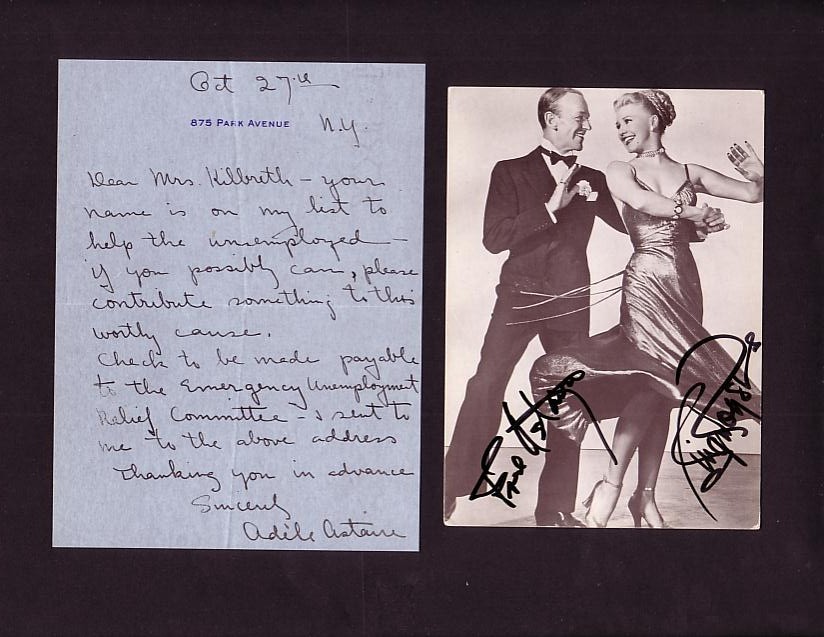 Oct 27th
875 PARK AVENUE
N.Y.
Dear Mrs. Kilbreth - your
name is on my list to
help the unemployed -
if you possibly can, please
contribute something to this
worthy cause.
Check to be made payable
to the Emergency Unemployment
Relief Committee - & sent to
me to the above address
Thanking you in advance
Sincerely
Adèle Astaire
Fred Astaire
Ginger Rogers